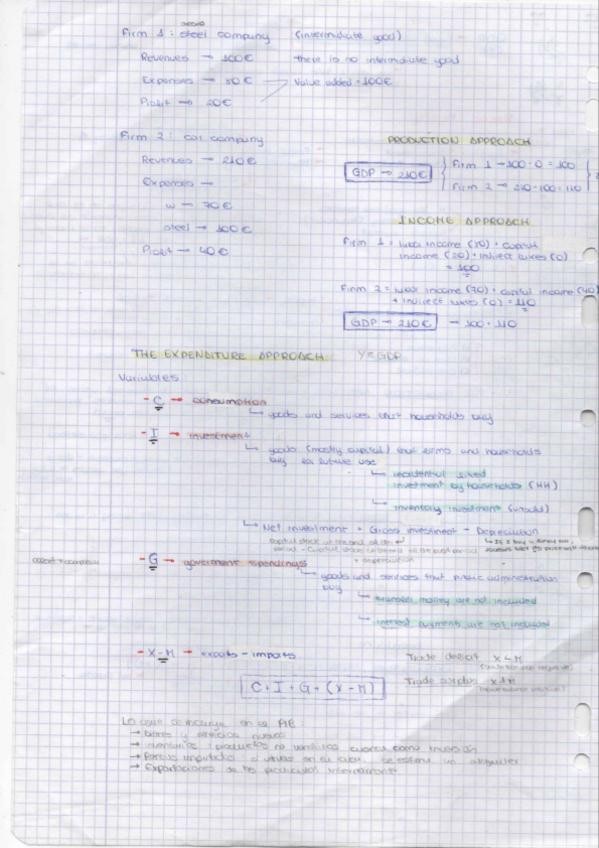 Firm 1: steel company (intermediate good)
Revenues → 100€ there is no intermediate good
Expenses → 80€ Value added = 100€
Profit → 20€
Firm 2: car company
PRODUCTION APPROACH
Revenues → 210€
GDP → 210€ Firm 1 → 100 - 0 = 100
Expenses →
Firm 2 → 210 - 100 = 110
w → 70€
INCOME APPROACH
steel → 100€
Firm 1 = labor income (80) + capital
Profit → 40€
income (20) + indirect taxes (0)
= 100
Firm 2 = labor income (70) + capital income (40)
+ indirect taxes (0) = 110
GDP → 210€ → 100 + 110
THE EXPENDITURE APPROACH Y = GDP
Variables
- C → consumption
goods and services that households buy
- I → investment
goods (mostly capital) that firms and households
buy for future use
residential fixed
investment by households (HH)
inventory investment (unsold)
Net investment = Gross investment - Depreciation
capital stock at the end of the
period - capital stock
+ depreciation
- G → government spendings
goods and services that public administration
buy
transfer money are not included
interest payments are not included
- X-M → exports - imports
Trade deficit X<M
Trade surplus X>M
C + I + G + (X - M)
Lo que se incluye en el PIB:
→ bienes y servicios nuevos
→ inventarios: productos no vendidos cuentan como inversión
→ Rentas imputadas: si vives en tu casa, se estima un alquiler
→ Exportaciones de los productos intermedios